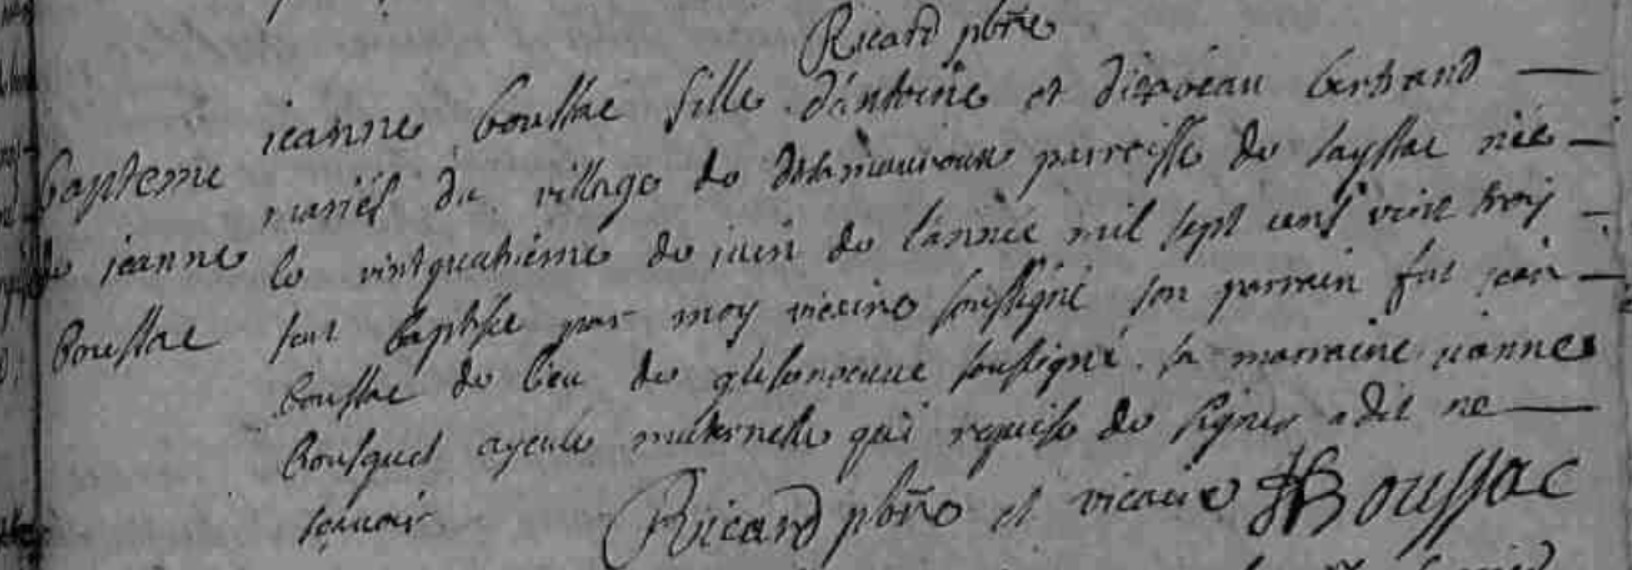 Ricard pbrē
jeanne boussac fille d'antoine et bertrand
Bapteme
mariés du village de parroisse de sayssac née
de jeanne
le vintquatrieme de juin de l'année mil sept cens vint troy
boussac
feut baptisée par moy viccaire soussigné son parrain fut jean
boussac du lieu de soussigné. sa marraine jeanne
bousquet ayeule maternelle qui requise de signer a dit ne
sçavoir
Ricard pbrē et vicaire Boussac